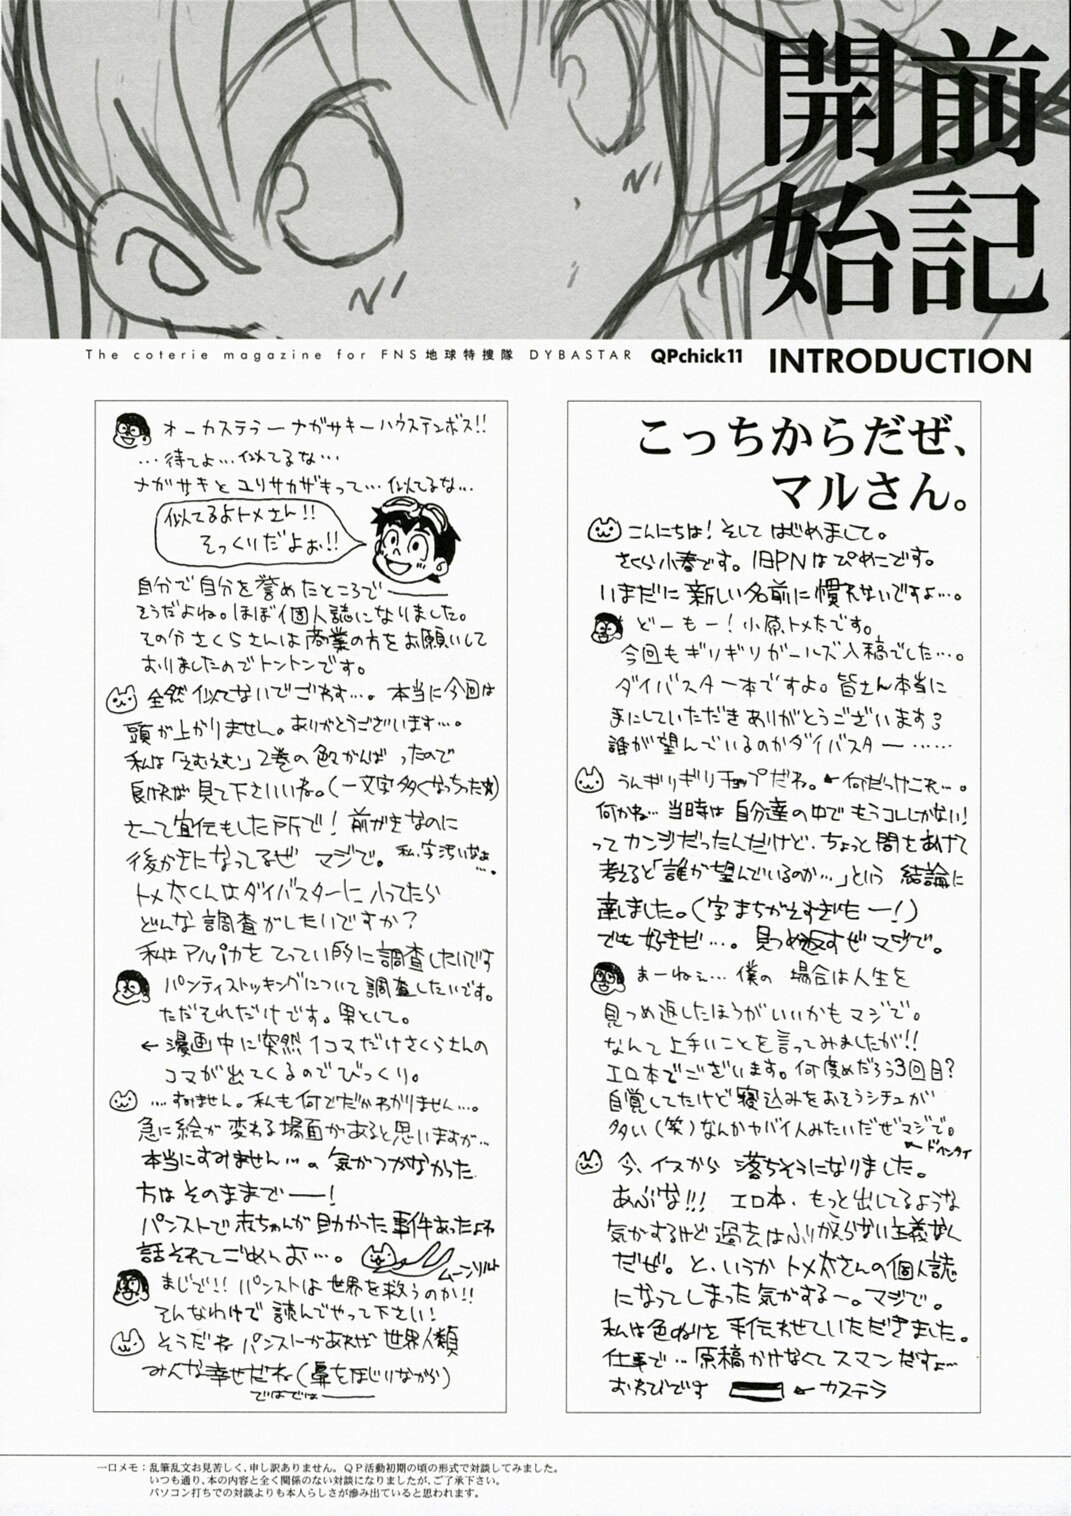 前記
開始
The coterie magazine for FNS地球特捜隊 DYBASTAR QPchick11 INTRODUCTION
こっちからだぜ、
マルさん。
こんにちは!そしてはじめまして。
さくら小春です。旧PNはぴめこです。
いまだに新しい名前に慣れないですよ…。
どーもー!小原トメ太です。
今回もギリギリガールズ入稿でした…。
ダイバスター本ですよ。皆さん本当に
手にしていただきありがとうございます
誰が望んでいるのかダイバスター……
うんギリギリチョップだわ。←何だっけこれ…。
何かね…当時は自分達の中でもうコレしかない!
ってカンジだったんだけど、ちょっと間をあけて
考えると「誰が望んでいるのか…」という結論に
達しました。(字まちがえすぎたー!)
でも好きだ…。見つめ返すぜマジで。
まーねぇ…僕の場合は人生を
見つめ返したほうがいいかもマジで。
なんて上手いことを言ってみましたが!!
エロ本でございます。何度めだろう3回目?
自覚してたけど寝込みをおそうシチュが
多い(笑)なんかヤバイ人みたいだぜマジで。
←ドヘンタイ
今、イスから落ちそうになりました。
あぶな!!! エロ本、もっと出してるような
気がするけど過去はふりかえらない主義なん
だぜ。と、いうかトメ太さんの個人誌
になってしまった気がするー。マジで。
私は色ぬりを手伝わせていただきました。
仕事で…原稿かけなくてスマンだすよ…
おわびです ←カステラ
オーカステラーナガサキーハウステンボス!!
…待てよ…似てるな…
ナガサキとユリサカザキって…似てるな…
似てるよトメさん!!
そっくりだよぉ!!
自分で自分を誉めたところで――
そうだよね。ほぼ個人誌になりました。
その分さくらさんは商業の方をお願いして
おりましたのでトントンです。
全然似てないでごわす…。本当に今回は
頭が上がりません。ありがとうございます…。
私は「えむえむ」2巻の色々がんばったので
良ければ見て下さいいね。(一文字多くなっちった)
さーて宣伝もした所で!前がきなのに
後がきになってるぜ マジで。私、字汚いなぁ…。
トメ太くんはダイバスターに入ってたら
どんな調査がしたいですか?
私はアルパカをてってい的に調査したいです
パンティストッキングについて調査したいです。
ただそれだけです。男として。
←漫画中に突然1コマだけさくらさんの
コマが出てくるのでびっくり。
…すみません。私も何でだかわかりません…。
急に絵が変わる場面があると思いますが…
本当にすみません…。気がつかなかった
方はそのままで――!
パンストで赤ちゃんが助かった事件あったよね
話それてごめんお…。
ムーンソルト
まじで!! パンストは世界を救うのか!!
そんなわけで読んでやって下さい!
そうだねパンストがあれば世界人類
みんな幸せだね(鼻をほじりながら)
ではでは――
一口メモ:乱筆乱文お見苦しく、申し訳ありません。QP活動初期の頃の形式で対談してみました。
いつも通り、本の内容と全く関係のない対談になりましたが、ご了承下さい。
パソコン打ちでの対談よりも本人らしさが滲み出ていると思われます。